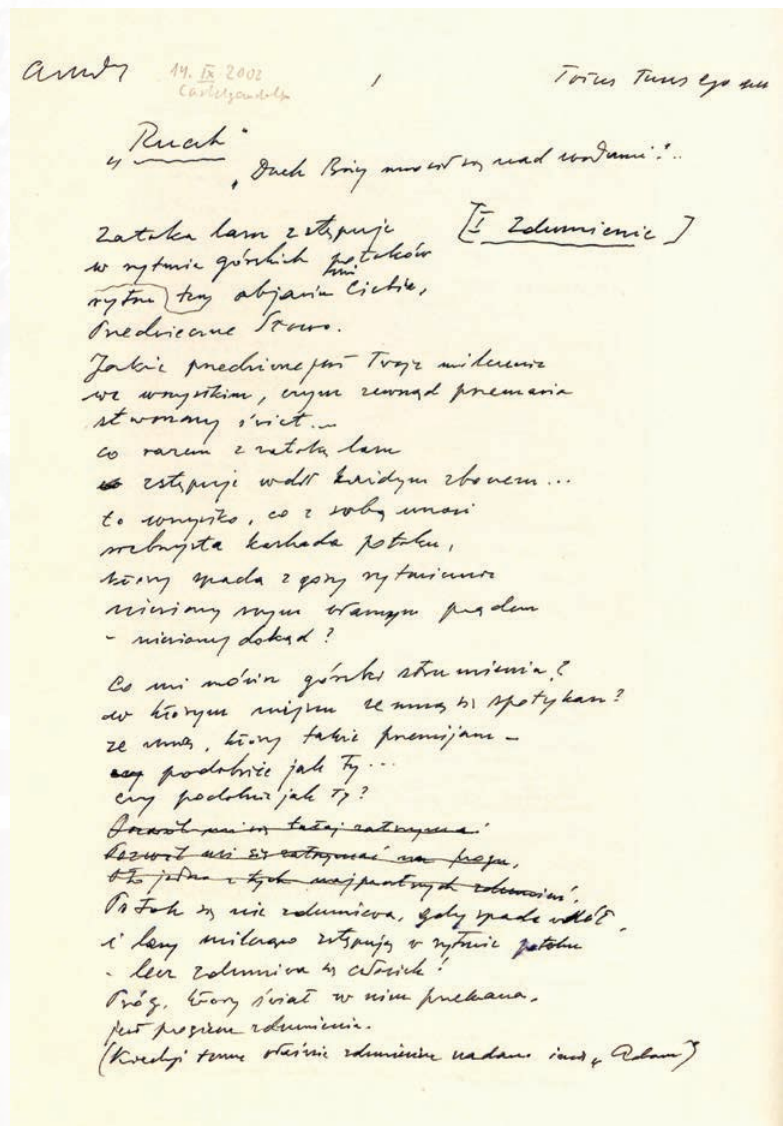 14. IX 2002
Castelgandolfo
1
Totus Tuus ego sum
„Ruah"
„Duch Boży unosił się nad wodami"..
[I Zdumienie]
Zatoka lasu zstępuje
w rytmie górskich potoków
rytm ten objawia mi Ciebie,
Przedwieczne Słowo.
Jakże przedziwne jest Twoje milczenie
we wszystkim, czym zewsząd przemawia
stworzony świat...
co razem z zatoką lasu
zstępuje w dół każdym zboczem...
to wszystko, co z sobą unosi
srebrzysta kaskada potoku,
który spada z góry rytmicznie
niesiony swym własnym prądem
- niesiony dokąd?
Co mi mówisz górski strumieniu?
w którym miejscu ze mną się spotykasz?
ze mną, który także przemijam -
podobnie jak Ty...
czy podobnie jak Ty?
Pozwól mi się tutaj zatrzymać
Pozwól mi się zatrzymać na progu,
Oto jedno z tych najprostszych zdumień.
Potok się nie zdumiewa, gdy spada w dół
i lasy milcząco zstępują w rytmie potoku
- lecz zdumiewa się człowiek!
Próg, który świat w nim przekracza,
jest progiem zdumienia.
(Kiedyś temu właśnie zdumieniu nadano imię „Adam")